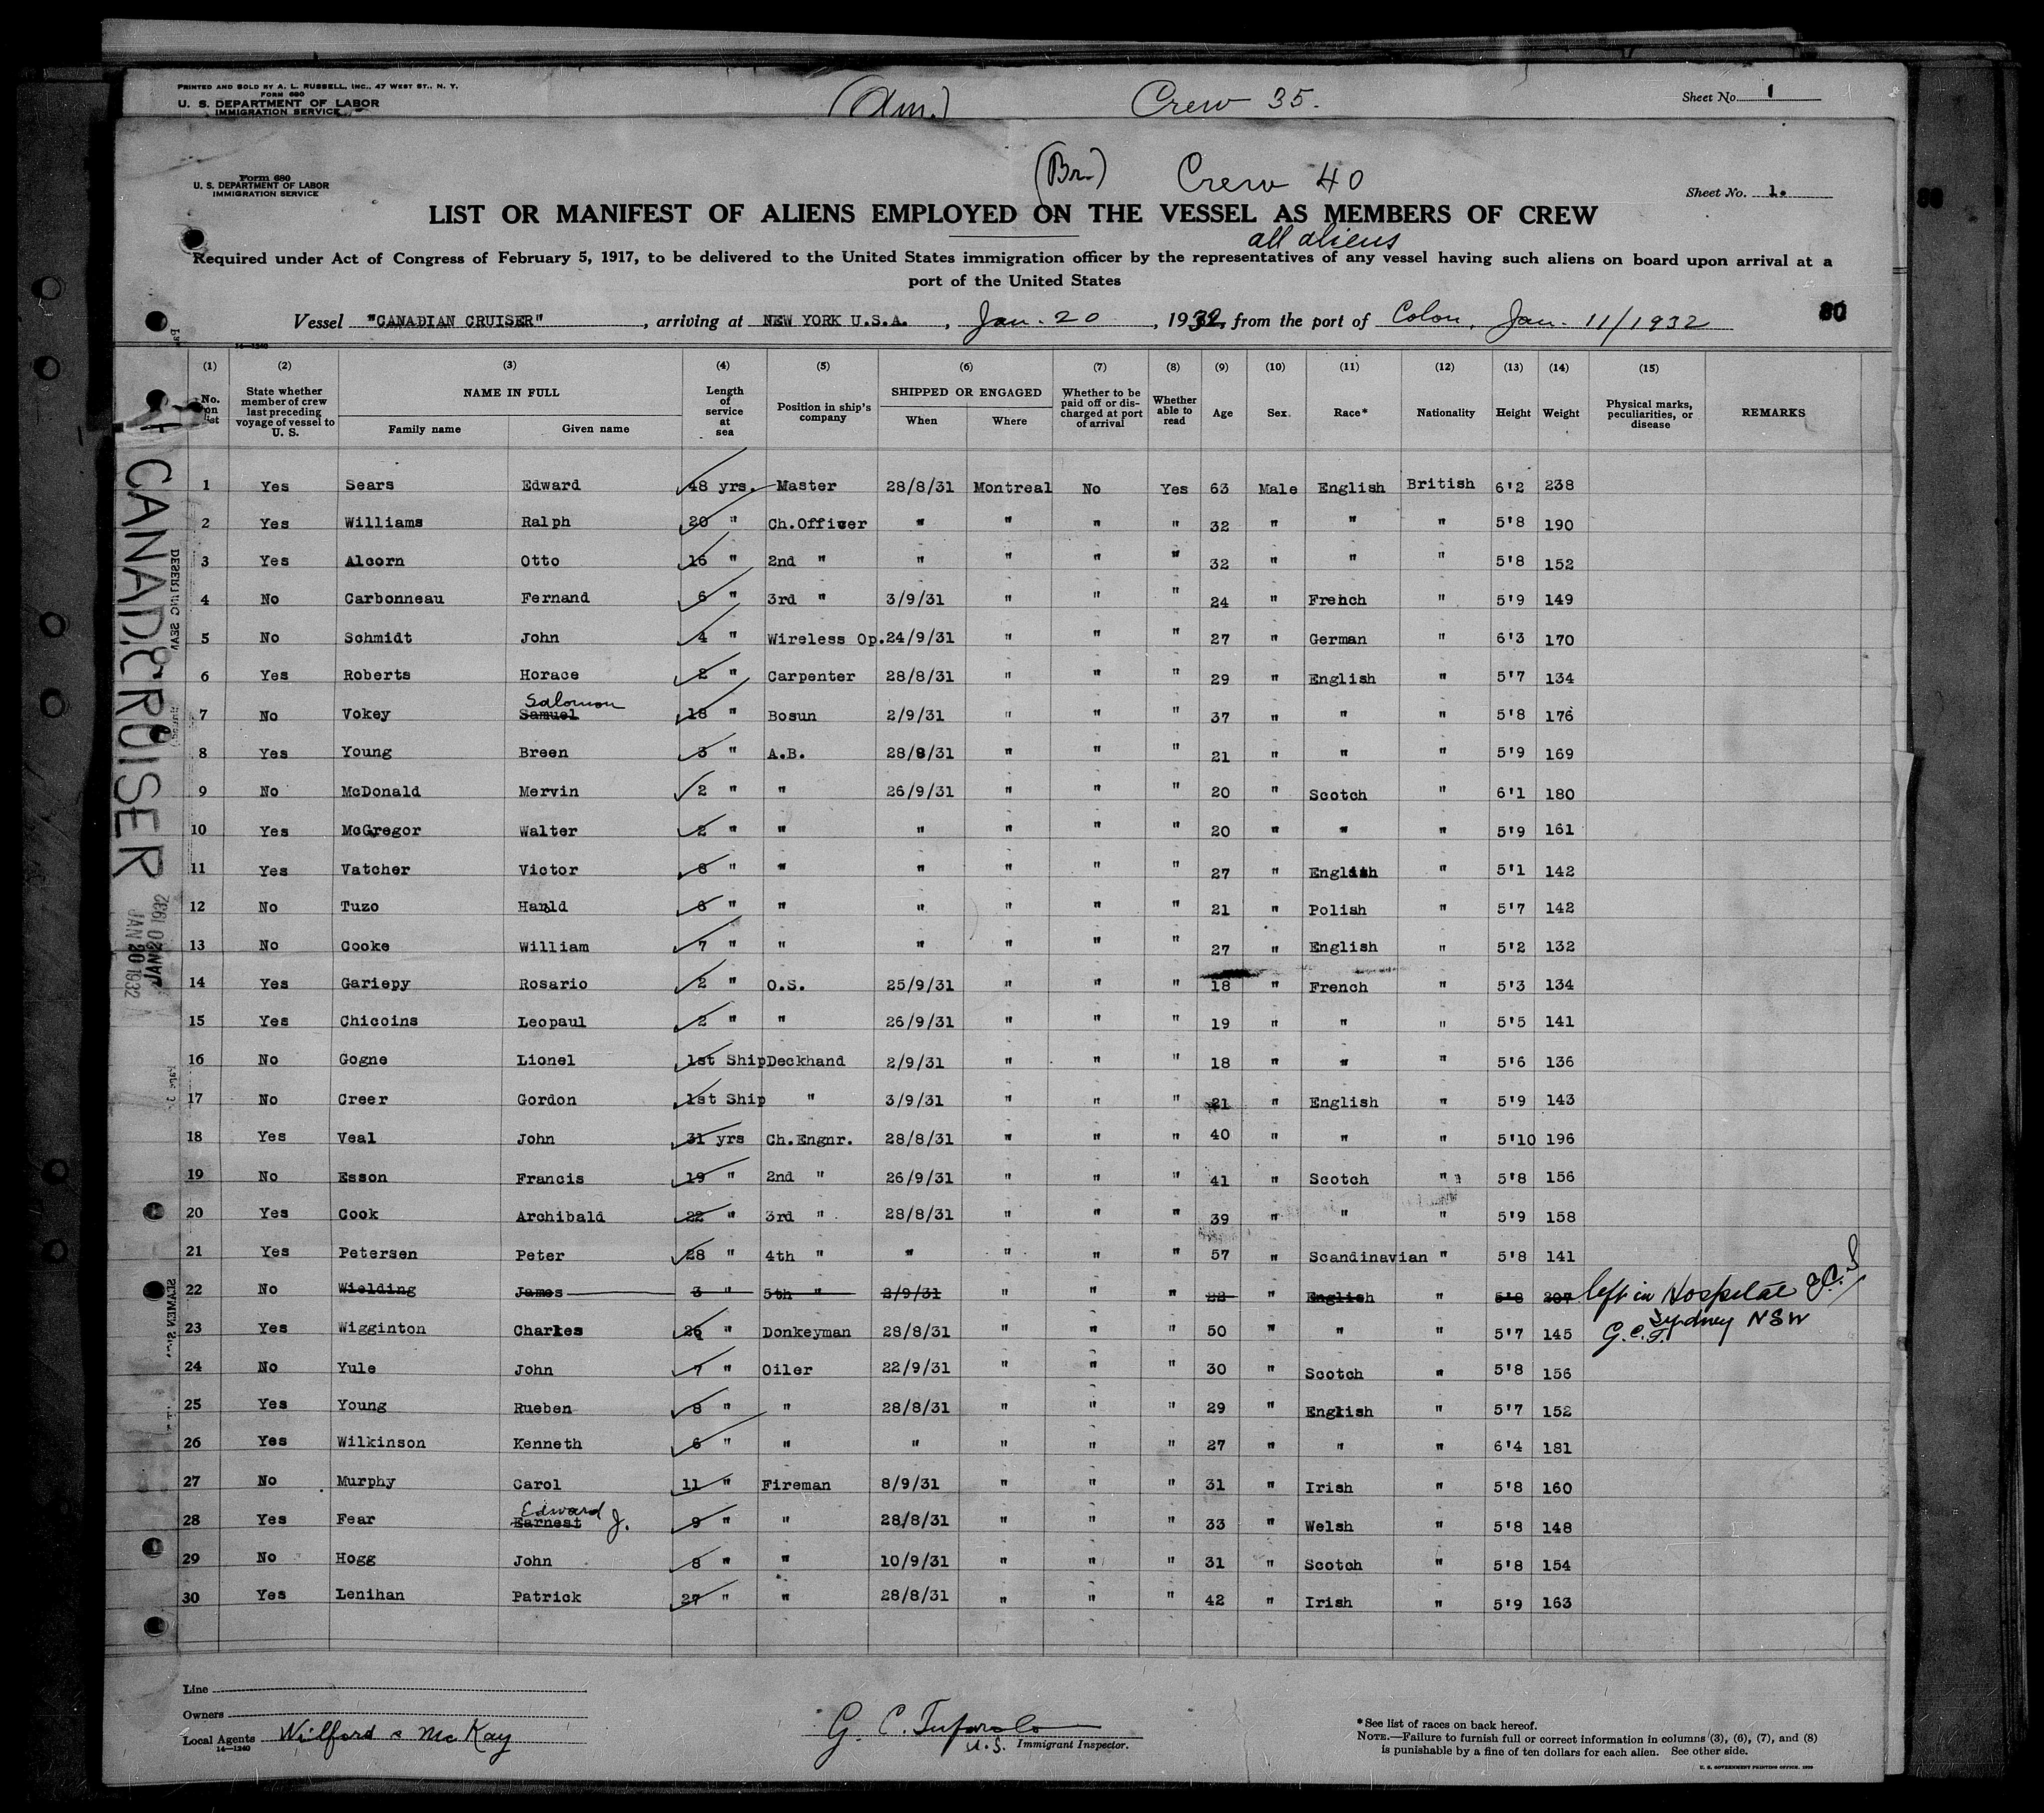 PRINTED AND SOLD BY A. L. RUSSELL, INC., 47 WEST ST., N. Y.
FORM 680
U. S. DEPARTMENT OF LABOR
IMMIGRATION SERVICE
(Am.) Crew 35. Sheet No. 1
Form 680
U. S. DEPARTMENT OF LABOR
IMMIGRATION SERVICE
(Br.) Crew 40 Sheet No. 1.
LIST OR MANIFEST OF ALIENS EMPLOYED ON THE VESSEL AS MEMBERS OF CREW
all aliens
Required under Act of Congress of February 5, 1917, to be delivered to the United States immigration officer by the representatives of any vessel having such aliens on board upon arrival at a
port of the United States
Vessel "CANADIAN CRUISER", arriving at NEW YORK U.S.A., Jan. 20, 1932, from the port of Colon, Jan. 11/1932
80
14—1240
(1) (2) (3) (4) (5) (6) (7) (8) (9) (10) (11) (12) (13) (14) (15)
No. on list State whether member of crew last preceding voyage of vessel to U. S. NAME IN FULL Family name Given name Length of service at sea Position in ship's company SHIPPED OR ENGAGED When Where Whether to be paid off or discharged at port of arrival Whether able to read Age Sex Race* Nationality Height Weight Physical marks, peculiarities, or disease REMARKS
1 Yes Sears Edward 48 yrs. Master 28/8/31 Montreal No Yes 63 Male English British 6'2 238
2 Yes Williams Ralph 20 " Ch.Officer " " " " 32 " " " 5'8 190
3 Yes Alcorn Otto 16 " 2nd " " " " " 32 " " " 5'8 152
4 No Carbonneau Fernand 6 " 3rd " 3/9/31 " " " 24 " French " 5'9 149
5 No Schmidt John 4 " Wireless Op. 24/9/31 " " " 27 " German " 6'3 170
6 Yes Roberts Horace 2 " Carpenter 28/8/31 " " " 29 " English " 5'7 134
Salomon
7 No Vokey Samuel 18 " Bosun 2/9/31 " " " 37 " " " 5'8 176
8 Yes Young Breen 3 " A.B. 28/8/31 " " " 21 " " " 5'9 169
9 No McDonald Mervin 2 " " 26/9/31 " " " 20 " Scotch " 6'1 180
10 Yes McGregor Walter 2 " " " " " " 20 " " " 5'9 161
11 Yes Vatcher Victor 8 " " " " " " 27 " English " 5'1 142
12 No Tuzo Harold 6 " " " " " " 21 " Polish " 5'7 142
13 No Cooke William 7 " " " " " " 27 " English " 5'2 132
14 Yes Gariepy Rosario 2 " O.S. 25/9/31 " " " 18 " French " 5'3 134
15 Yes Chicoins Leopaul 2 " " 26/9/31 " " " 19 " " " 5'5 141
16 No Gogne Lionel 1st Ship Deckhand 2/9/31 " " " 18 " " " 5'6 136
17 No Creer Gordon 1st Ship " 3/9/31 " " " 21 " English " 5'9 143
18 Yes Veal John 31 yrs Ch.Engnr. 28/8/31 " " " 40 " " " 5'10 196
19 No Esson Francis 19 " 2nd " 26/9/31 " " " 41 " Scotch " 5'8 156
20 Yes Cook Archibald 22 " 3rd " 28/8/31 " " " 39 " " " 5'9 158
21 Yes Petersen Peter 28 " 4th " " " " " 57 " Scandinavian " 5'8 141
22 No Wielding James 3 " 5th " 2/9/31 " " " 22 " English " 5'8 207 left in Hospital
Sydney NSW
23 Yes Wigginton Charles 26 " Donkeyman 28/8/31 " " " 50 " " " 5'7 145 G.C.T.
24 No Yule John 7 " Oiler 22/9/31 " " " 30 " Scotch " 5'8 156
25 Yes Young Rueben 8 " " 28/8/31 " " " 29 " English " 5'7 152
26 Yes Wilkinson Kenneth 6 " " " " " " 27 " " " 6'4 181
27 No Murphy Carol 11 " Fireman 8/9/31 " " " 31 " Irish " 5'8 160
Edward J.
28 Yes Fear Earnest 9 " " 28/8/31 " " " 33 " Welsh " 5'8 148
29 No Hogg John 8 " " 10/9/31 " " " 31 " Scotch " 5'8 154
30 Yes Lenihan Patrick 27 " " 28/8/31 " " " 42 " Irish " 5'9 163
CANADI CRUISER
JAN 20 1932
JAN 20 1932
Line
Owners
Local Agents Wilford & McKay
14—1240
G. C.
U.S. Immigrant Inspector.
*See list of races on back hereof.
NOTE.—Failure to furnish full or correct information in columns (3), (6), (7), and (8)
is punishable by a fine of ten dollars for each alien. See other side.
U. S. GOVERNMENT PRINTING OFFICE